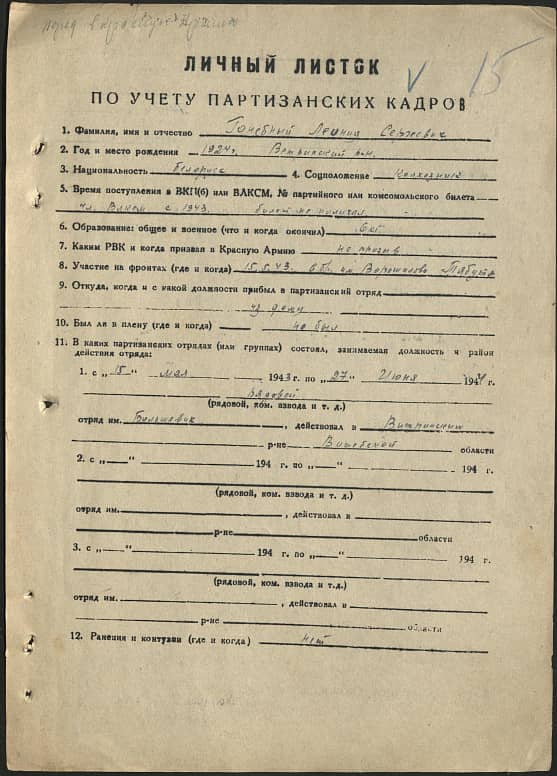 15
ЛИЧНЫЙ ЛИСТОК
ПО УЧЕТУ ПАРТИЗАНСКИХ КАДРОВ
1. Фамилия, имя и отчество
2. Год и место рождения 1924г. Ветринский р-н.
3. Национальность белорус 4. Соцположение Колхозник
5. Время поступления в ВКП(б) или ВЛКСМ, № партийного или комсомольского билета
чл. с 1943. билет не получал
6. Образование: общее и военное (что и когда окончил)
7. Каким РВК и когда призван в Красную Армию не призыв
8. Участие на фронтах (где и когда) 15.5.43. им Ворошилова
9. Откуда, когда и с какой должности прибыл в партизанский отряд
из дому
10. Был ли в плену (где и когда) не был
11. В каких партизанских отрядах (или группах) состоял, занимаемая должность и район
действия отряда:
1. с „15“ мая 1943 г. по „27“ Июня 1944 г.
Рядовой
(рядовой, ком. взвода и т. д.)
отряд им. Большевик, действовал в Ветринском
р-не Витебской области
2. с „ “ 194 г. по „ “ 194 г.
(рядовой, ком. взвода и т. д.)
отряд им. , действовал в
р-не области
3. с „ “ 194 г. по „ “ 194 г.
(рядовой, ком. взвода и т.д.)
отряд им. , действовал в
р-не области
12. Ранения и контузии (где и когда) нет